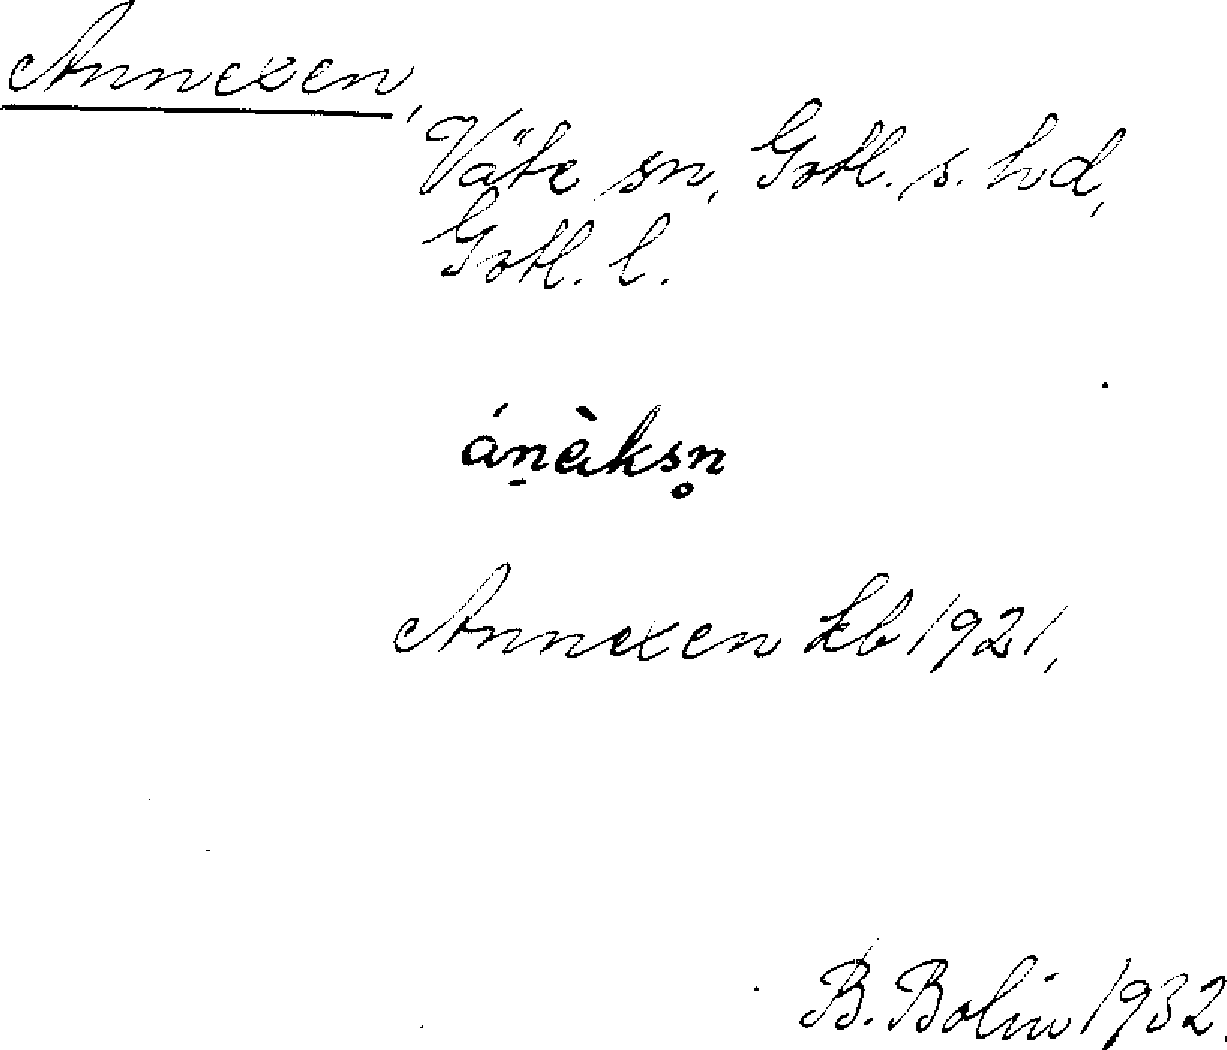 Annexen,
Väte sn, Gotl. s. hd,
Gotl. l.
áṉàksn̥
Annexen kb 1921,
B. Bolin 1932.